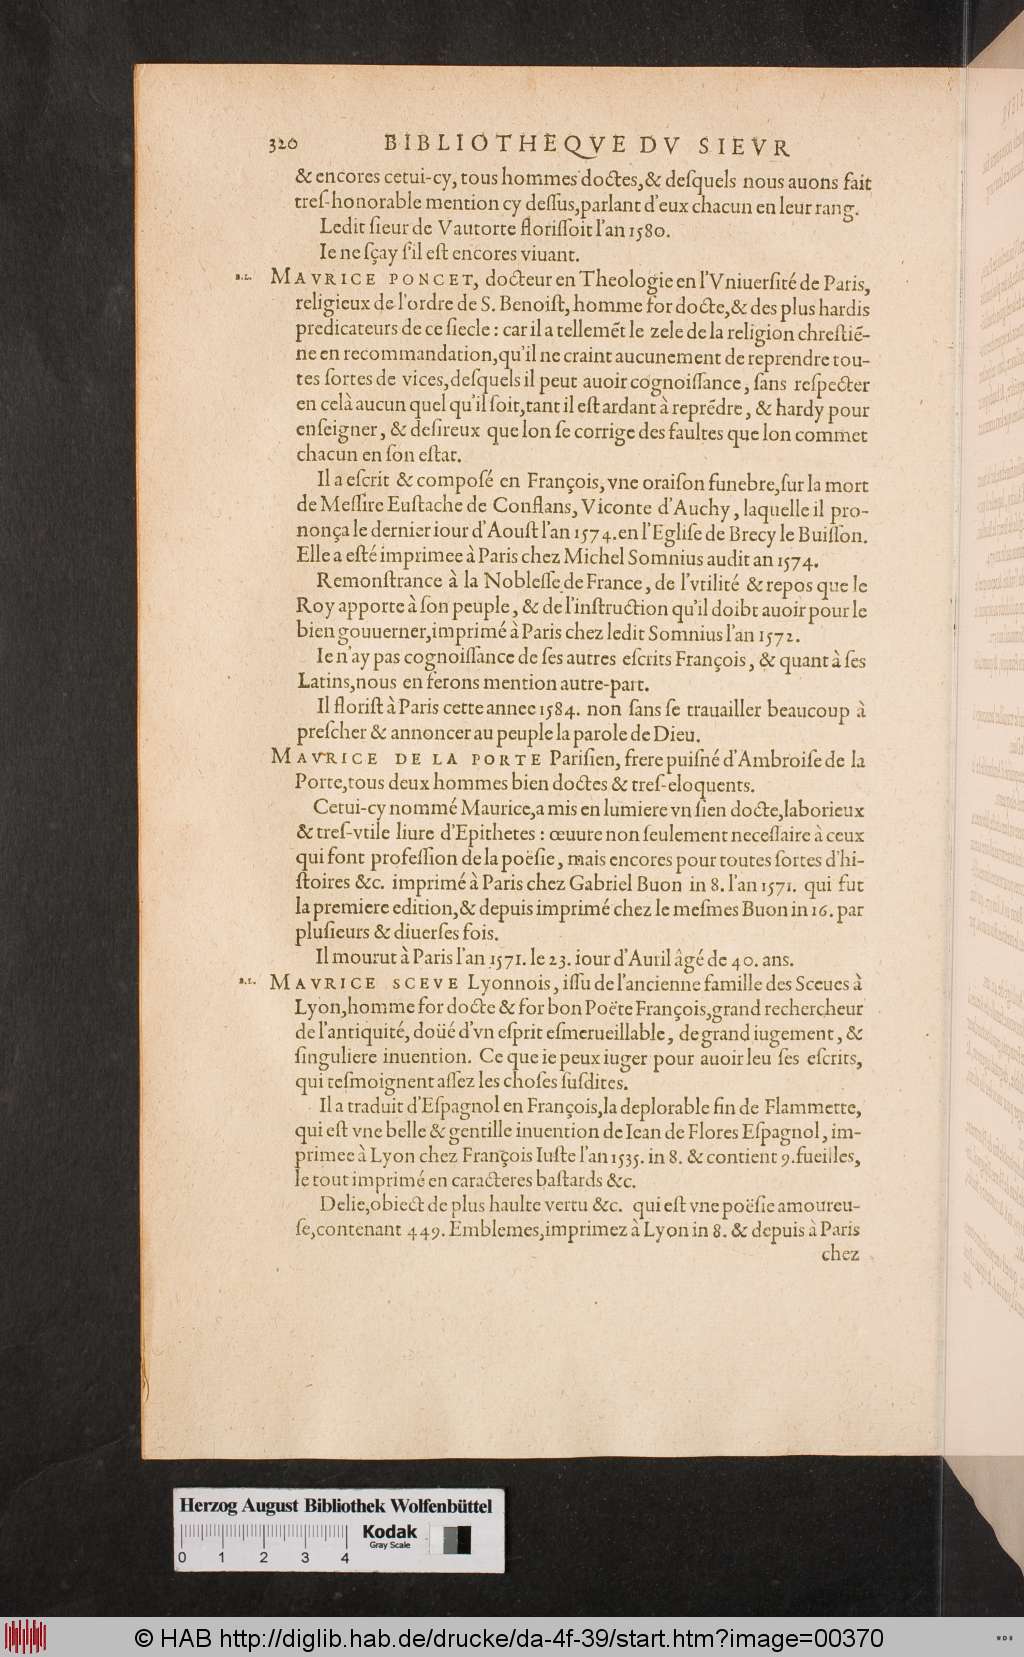 320 BIBLIOTHEQVE DV SIEVR
& encores cetui-cy, tous hommes doctes, & deſquels nous auons fait
treſ-honorable mention cy deſſus, parlant d'eux chacun en leur rang.
Ledit ſieur de Vautorte floriſſoit l'an 1580.
Ie ne ſçay s'il eſt encores viuant.
B.L. MAVRICE PONCET, docteur en Theologie en l'Vniuerſité de Paris,
religieux de l'ordre de S. Benoiſt, homme for docte, & des plus hardis
predicateurs de ce ſiecle : car il a tellemēt le zele de la religion chreſtiē-
ne en recommandation, qu'il ne craint aucunement de reprendre tou-
tes ſortes de vices, deſquels il peut auoir cognoiſſance, ſans reſpecter
en celà aucun quel qu'il ſoit, tant il eſt ardant à reprēdre, & hardy pour
enſeigner, & deſireux que lon ſe corrige des faultes que lon commet
chacun en ſon eſtat.
Il a eſcrit & compoſé en François, vne oraiſon funebre, ſur la mort
de Meſſire Euſtache de Conflans, Viconte d'Auchy, laquelle il pro-
nonça le dernier iour d'Aouſt l'an 1574. en l'Egliſe de Brecy le Buiſſon.
Elle a eſté imprimee à Paris chez Michel Somnius audit an 1574.
Remonſtrance à la Nobleſſe de France, de l'vtilité & repos que le
Roy apporte à ſon peuple, & de l'inſtruction qu'il doibt auoir pour le
bien gouuerner, imprimé à Paris chez ledit Somnius l'an 1572.
Ie n'ay pas cognoiſſance de ſes autres eſcrits François, & quant à ſes
Latins, nous en ferons mention autre-part.
Il floriſt à Paris cette annee 1584. non ſans ſe trauailler beaucoup à
preſcher & annoncer au peuple la parole de Dieu.
MAVRICE DE LA PORTE Pariſien, frere puiſné d'Ambroiſe de la
Porte, tous deux hommes bien doctes & treſ-eloquents.
Cetui-cy nommé Maurice, a mis en lumiere vn ſien docte, laborieux
& treſ-vtile liure d'Epithetes : œuure non ſeulement neceſſaire à ceux
qui font profeſſion de la poëſie, mais encores pour toutes ſortes d'hi-
ſtoires &c. imprimé à Paris chez Gabriel Buon in 8. l'an 1571. qui fut
la premiere edition, & depuis imprimé chez le meſmes Buon in 16. par
pluſieurs & diuerſes fois.
Il mourut à Paris l'an 1571. le 23. iour d'Auril âgé de 40. ans.
B.L. MAVRICE SCEVE Lyonnois, iſſu de l'ancienne famille des Sceues à
Lyon, homme for docte & for bon Poëte François, grand rechercheur
de l'antiquité, doüé d'vn eſprit eſmerueillable, de grand iugement, &
ſinguliere inuention. Ce que ie peux iuger pour auoir leu ſes eſcrits,
qui teſmoignent aſſez les choſes ſuſdites.
Il a traduit d'Eſpagnol en François, la deplorable fin de Flammette,
qui eſt vne belle & gentille inuention de Iean de Flores Eſpagnol, im-
primee à Lyon chez François Iuſte l'an 1535. in 8. & contient 9. fueilles,
le tout imprimé en caracteres baſtards &c.
Delie, obiect de plus haulte vertu &c. qui eſt vne poëſie amoureu-
ſe, contenant 449. Emblemes, imprimez à Lyon in 8. & depuis à Paris
chez
Herzog August Bibliothek Wolfenbüttel
Kodak
Gray Scale
0 1 2 3 4
© HAB http://diglib.hab.de/drucke/da-4f-39/start.htm?image=00370